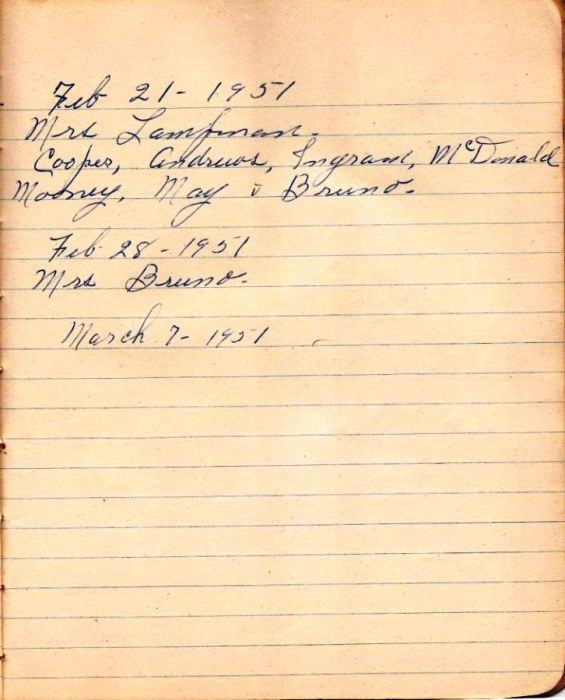 Feb 21 - 1951
Mrs Lampman.
Cooper, Andrews, Ingram, McDonald
Mooney, May & Bruno.
Feb 28 - 1951
Mrs Bruno.
March 7 - 1951